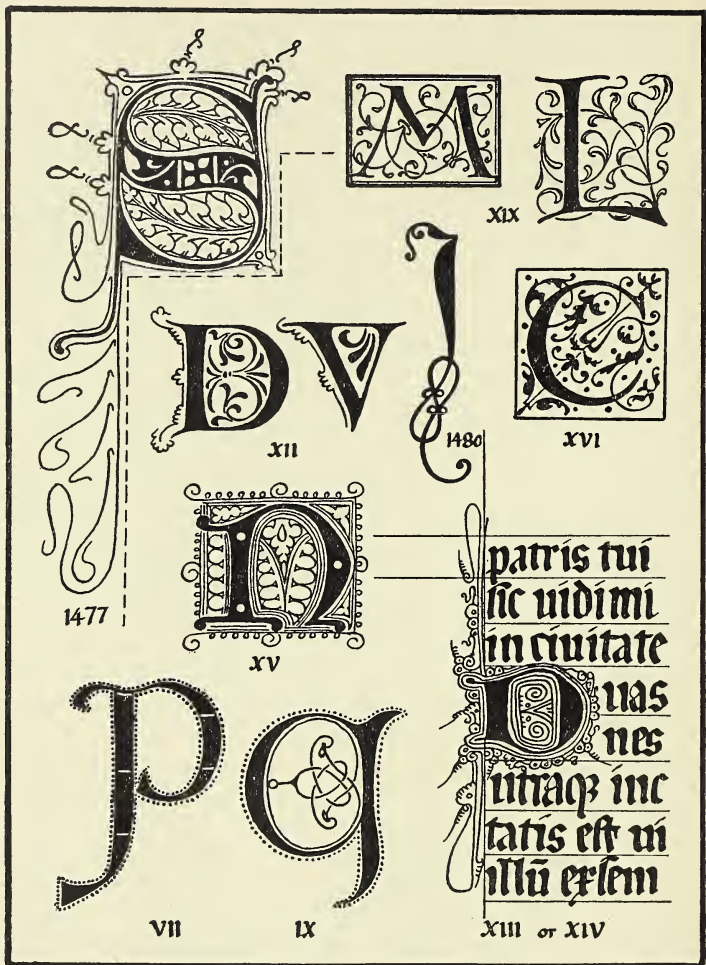 S
M L
XIX
D V
XII
I
1480
C
XVI
N
XV
1477
patris tui
ſic uidimi
in ciuitate
Duas
nes
utraqꝫ inc
tatis eſt ui
illū exſem
P q
VII IX
XIII or XIV